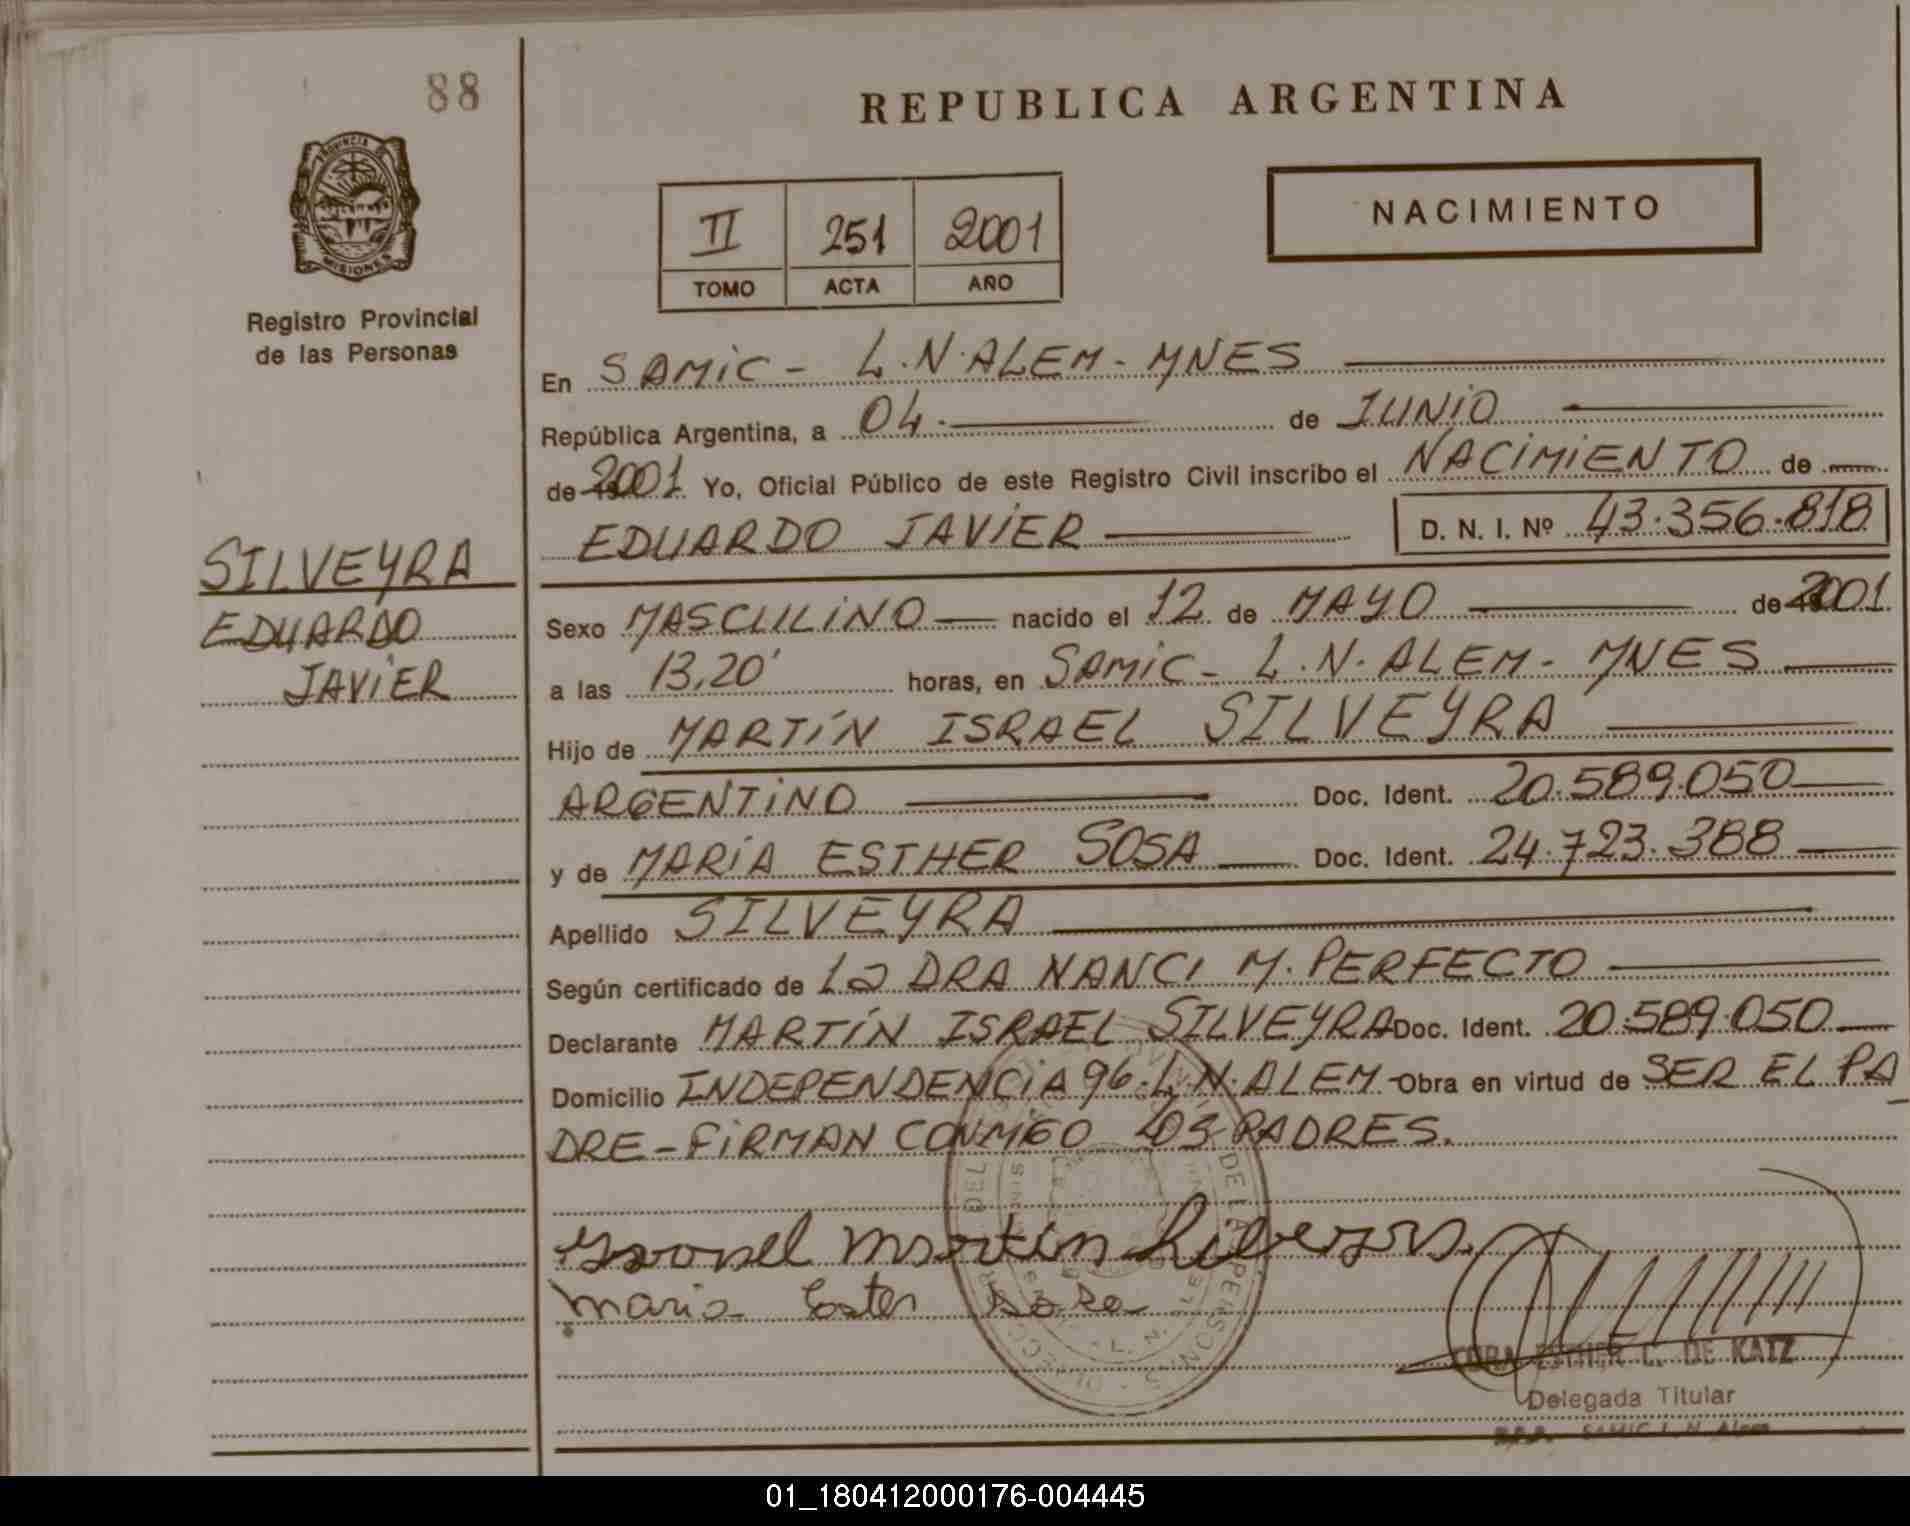 88
REPUBLICA ARGENTINA
PROVINCIA DE
MISIONES
Registro Provincial
de las Personas
II 251 2001
TOMO ACTA AÑO
NACIMIENTO
En SAMIC - L.N.ALEM - MNES
República Argentina, a 04 de JUNIO
de 2001 Yo, Oficial Público de este Registro Civil inscribo el NACIMIENTO de
EDUARDO JAVIER D. N. I. Nº 43.356.818
SILVEYRA
EDUARDO
JAVIER
Sexo MASCULINO nacido el 12 de MAYO de 2001
a las 13,20' horas, en SAMIC - L.N.ALEM - MNES
Hijo de MARTÍN ISRAEL SILVEYRA
ARGENTINO Doc. Ident. 20.589.050
y de MARÍA ESTHER SOSA Doc. Ident. 24.723.388
Apellido SILVEYRA
Según certificado de La DRA NANCI M. PERFECTO
Declarante MARTÍN ISRAEL SILVEYRA Doc. Ident. 20.589.050
Domicilio INDEPENDENCIA 96 - L.N.ALEM - Obra en virtud de SER EL PA
DRE - FIRMAN CONMIGO LOS PADRES.
Martin
Maria Ester
ESTHER C. DE KATZ
Delegada Titular
SAMIC L. N. Alem
01_180412000176-004445